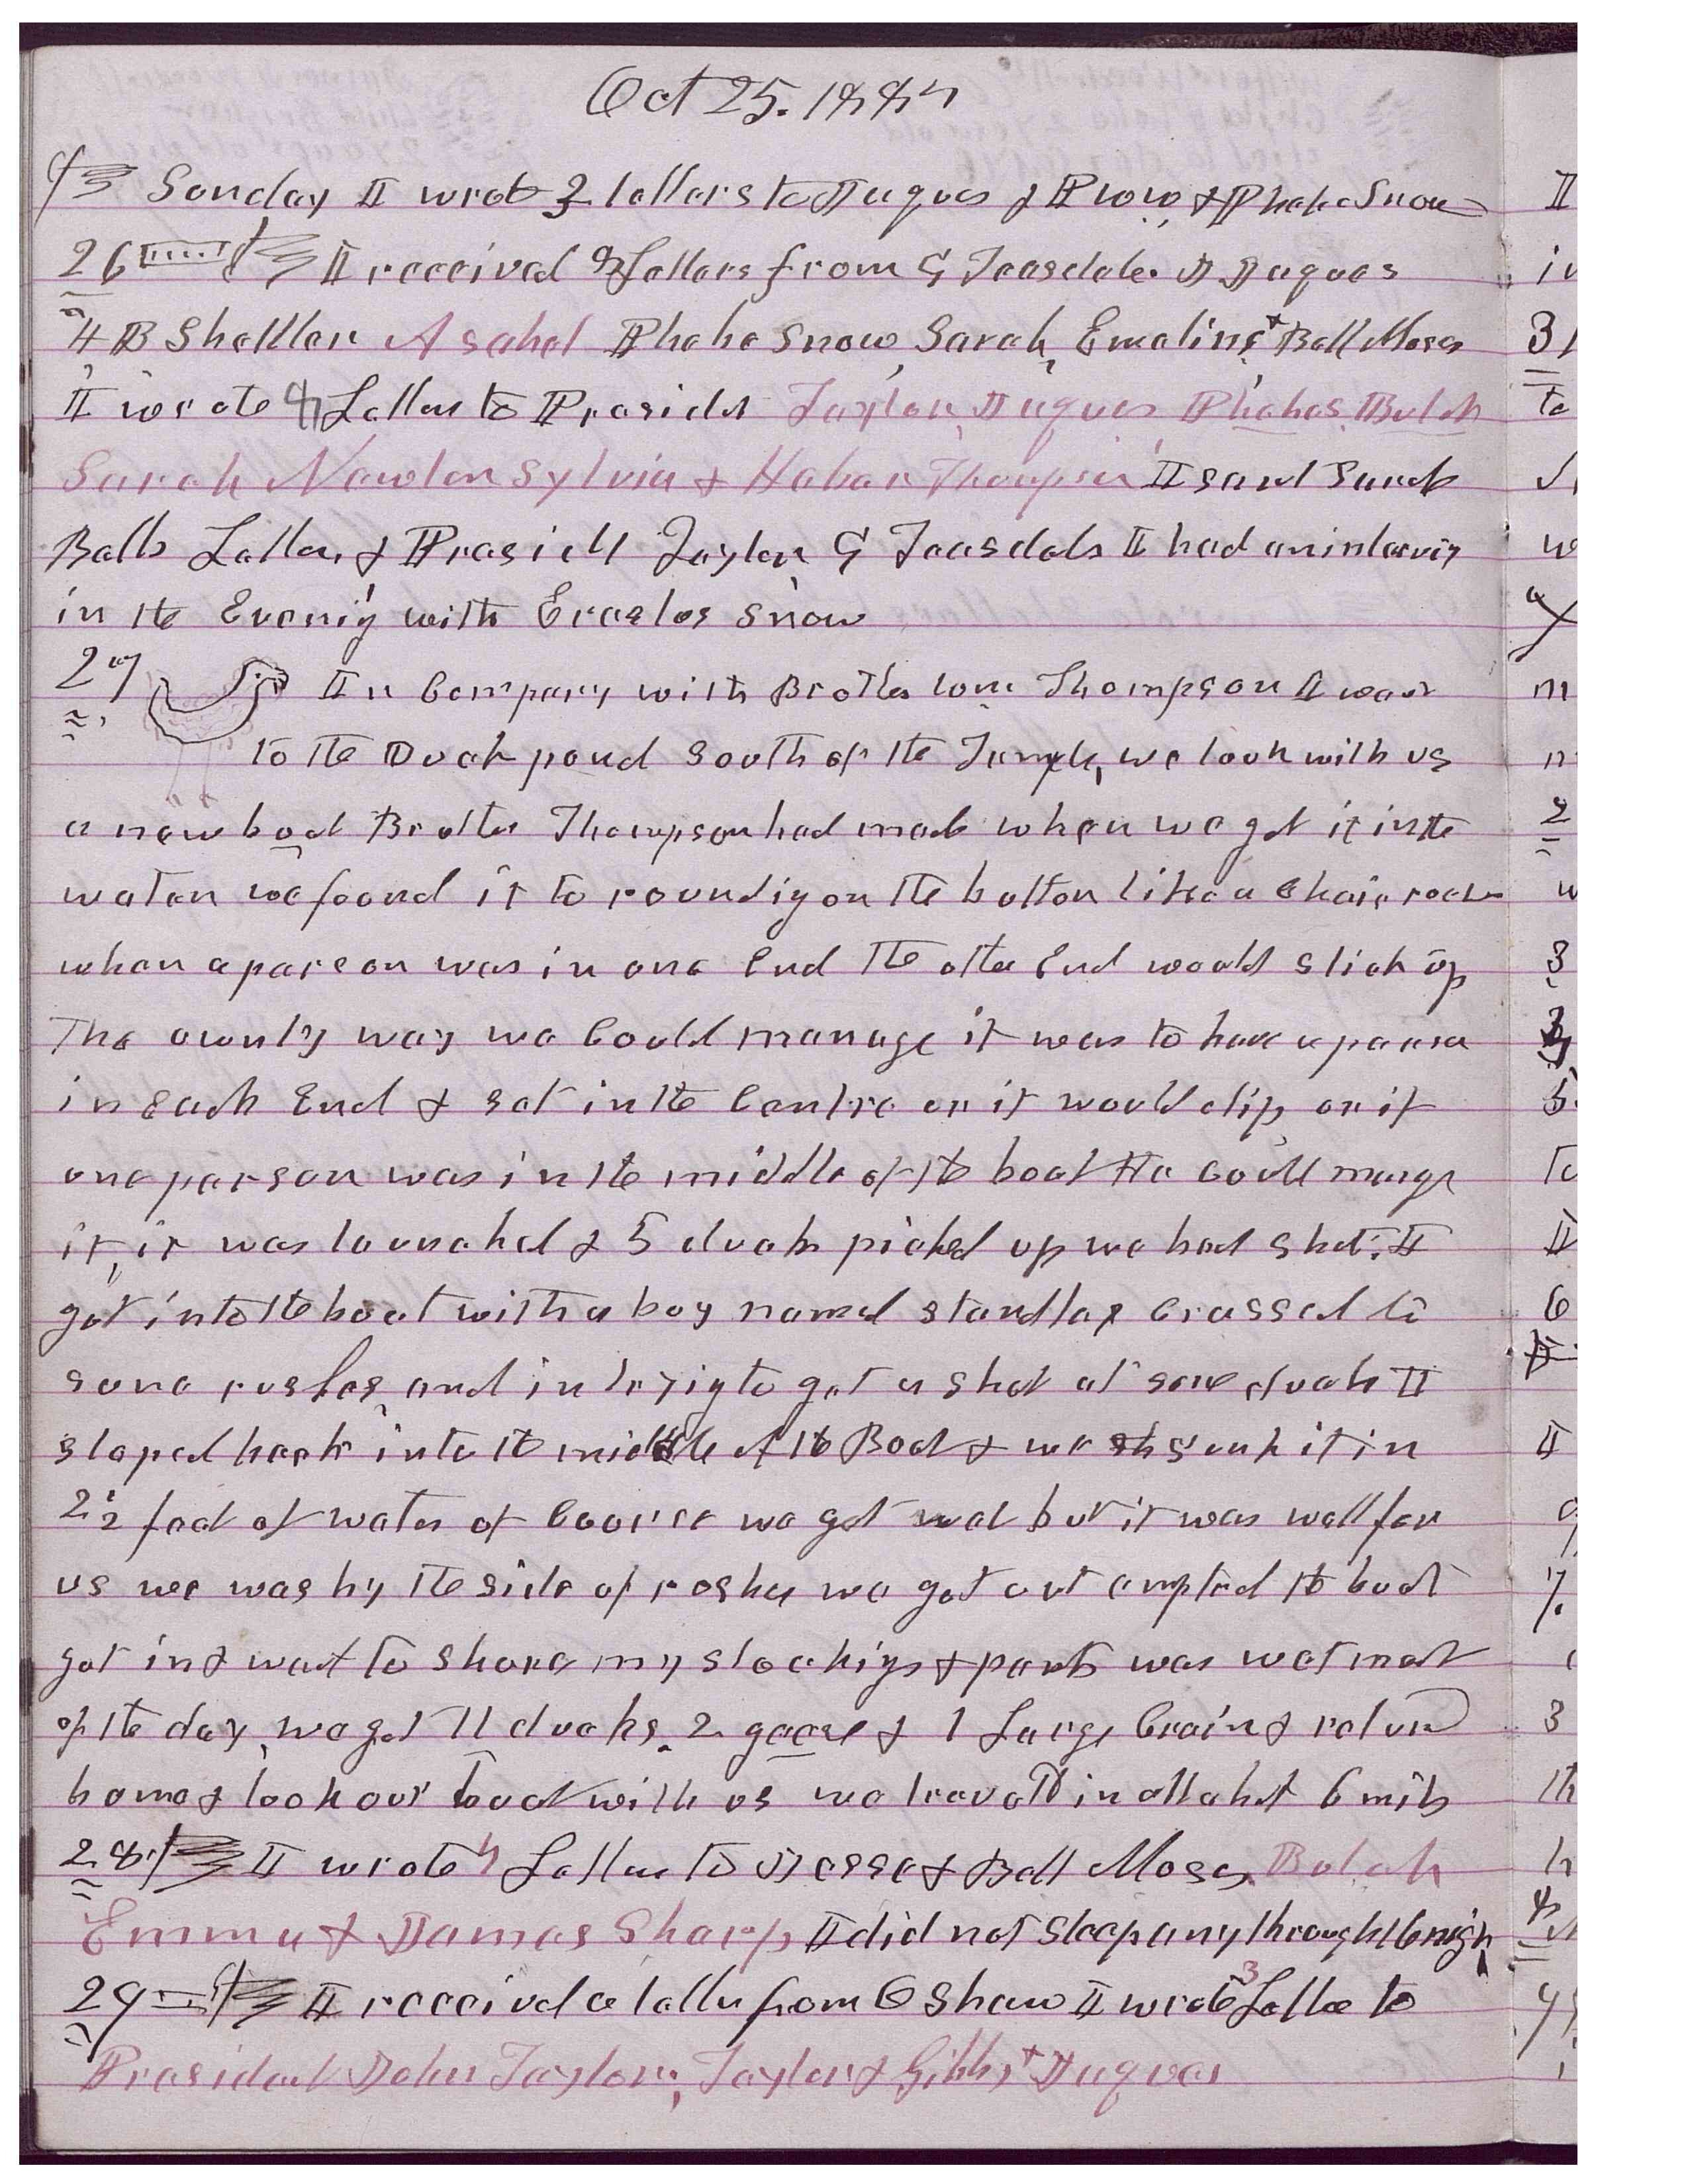 Oct 25. 1885
Sunday I wrote 3 letters to Jaques & Row & Phebe Snow
26 I received 9 Letters from G Teasdale. J Jaques
4 B Shettler Asahel Phebe Snow, Sarah, Emeline & Bell Moses
I wrote 7 Letters to Presidet Taylor, Jaques Phebes, Bulah
Sarah Newton Sylvia & Heber Thompson I sent Sarah
Bells Letter, & Presidt Taylor G Teasdals I had an interviy
in the Evenig with Erastus Snow
27 In Company with Brother Wm. Thompson I went
to the Duck pond South of the Temple, we took with us
a new boat Brother Thompson had made when we got it in the
water we found it to roundig on the botton like a Chair rock
when a person was in one End the other End would stick up
The ownly way we Could manage it was to have a person
in Each End & set in the Centre or it would dip, or if
one person was in the middle of the boat He Could mange
it, it was launched & 5 ducks picked up we had shot. I
got into the boat with a boy named Standlax Crossed to
some rushes, and in tryig to get a shot at some ducks II
steped back into the middle of the Boat & we sunk it in
2½ feet of water of Course we got wet but it was well for
us we was by the side of rushes we got out emptied the boat
got in & went to shore my stockigs & pants was wet most
of the day, we got 11 ducks. 2 geese & 1 Large Crain & return
home & took our boat with us we travelled in all abut 6 mils
28 I wrote 4 Letters to Jesse & Bell Moses, Bulah
Emma & James Sharp, I did not Sleep any through the nigh
29 I received a letter from O Shaw I wrote 3 Letters to
President John Taylor, Taylor & Gibbs & Jaques